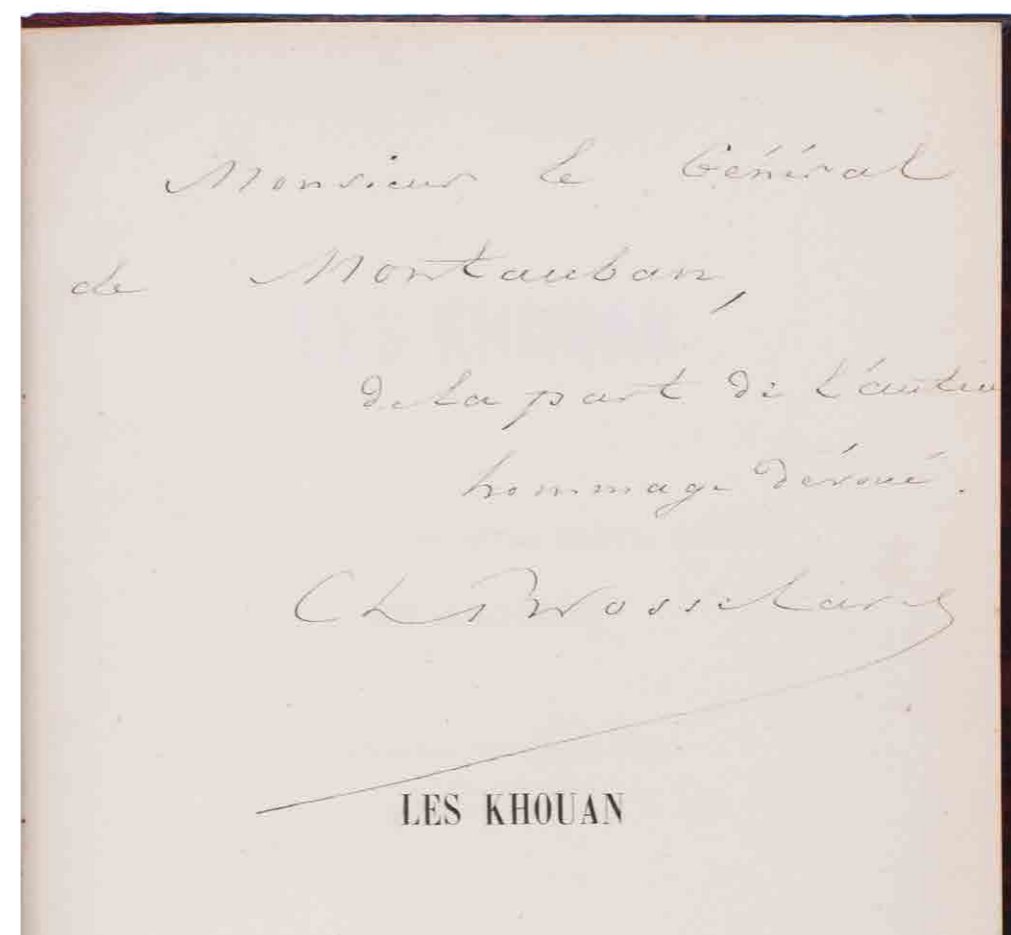 Monsieur le Général
de Montauban,
de la part de l'auteu
hommage dévoué.
Ch Brosselard
LES KHOUAN